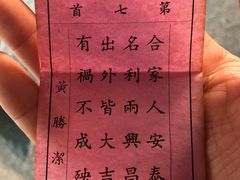 第七首
合家人安泰
名利兩興昌
出外皆大吉
有禍不成殃
黃勝潔